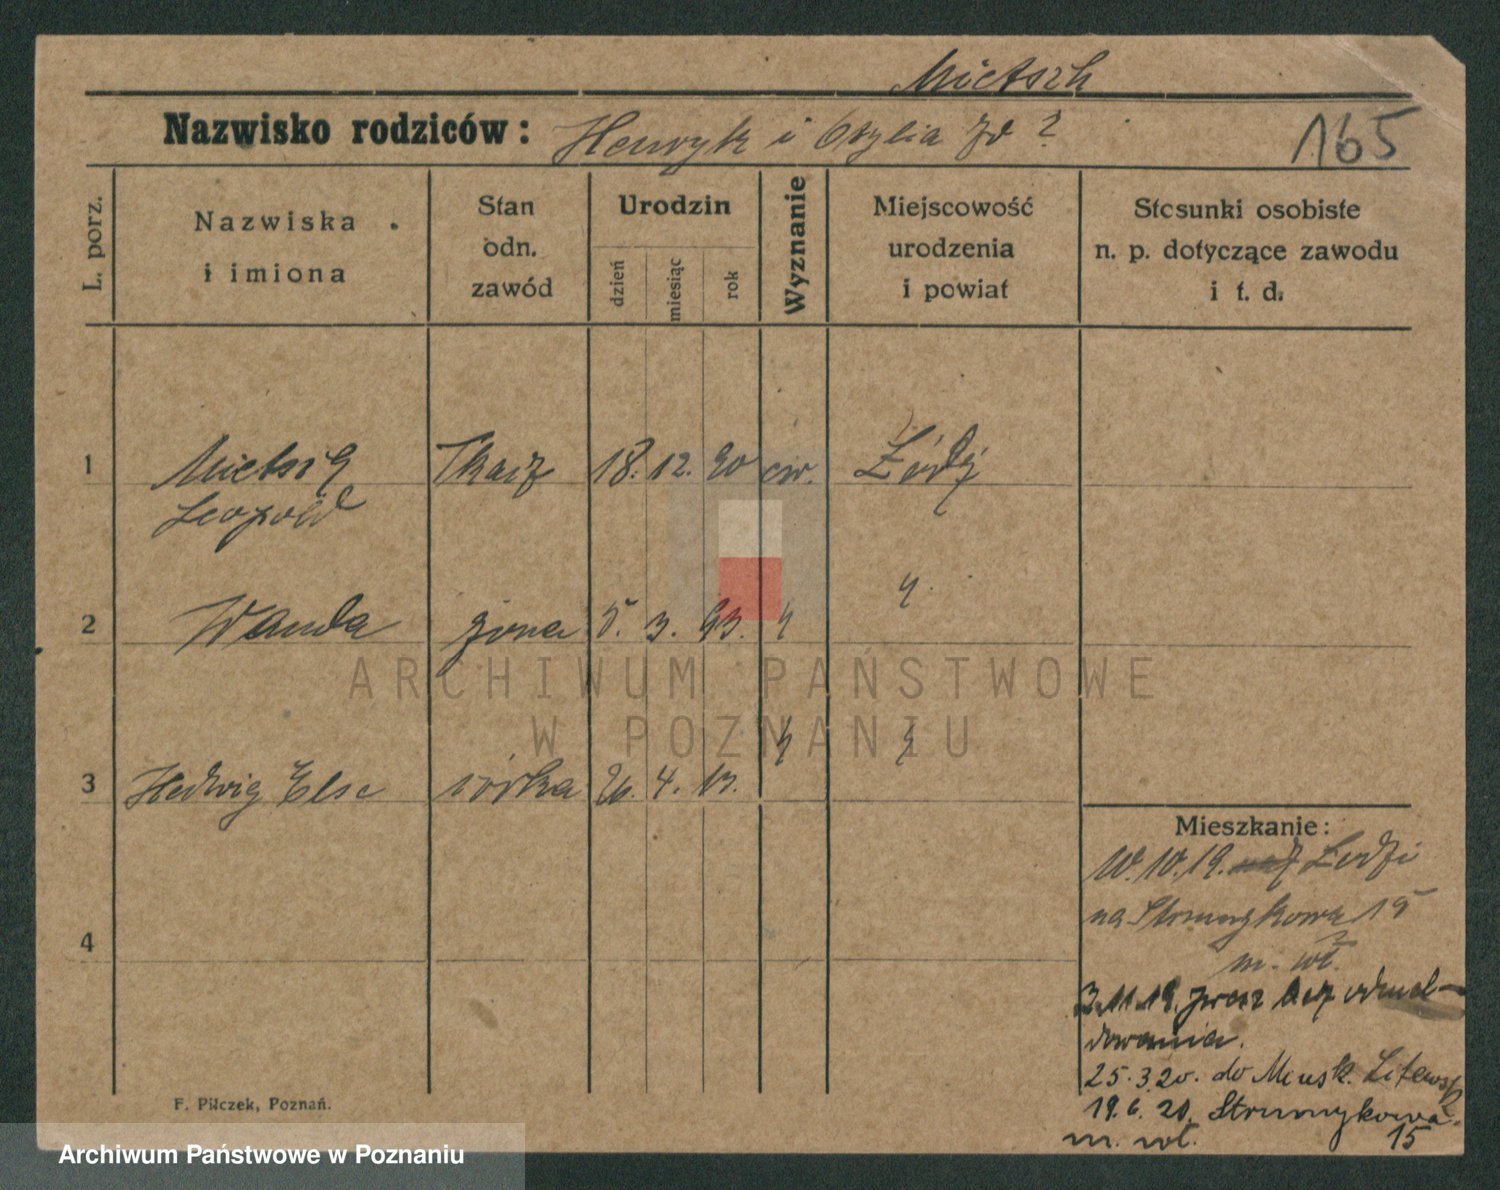 Mietsch
Nazwisko rodziców: Henryk i Otylia zd ?
165
L. porz.
Nazwiska
i imiona
Stan
odn.
zawód
Urodzin
dzień
miesiąc
rok
Wyznanie
Miejscowość
urodzenia
i powiat
Stosunki osobiste
n. p. dotyczące zawodu
i t. d.
1 Mietsch Tkacz 18. 12. 90 ew. Łódź
Leopold
2 Wanda żona 5. 3. 93. "
"
3 Hedwig Else córka 26. 4. 13. " "
Mieszkanie:
10.10.19. Łodzi
na Strumykowa 15
m. wł.
3.11.19. precz bez odmel-
dowania.
4
25.3.20. do Minsk. Litewsk
19.6.20. Strumykowa
m. wł. 15
F. Pilczek, Poznań.
ARCHIWUM PAŃSTWOWE
W POZNANIU
Archiwum Państwowe w Poznaniu